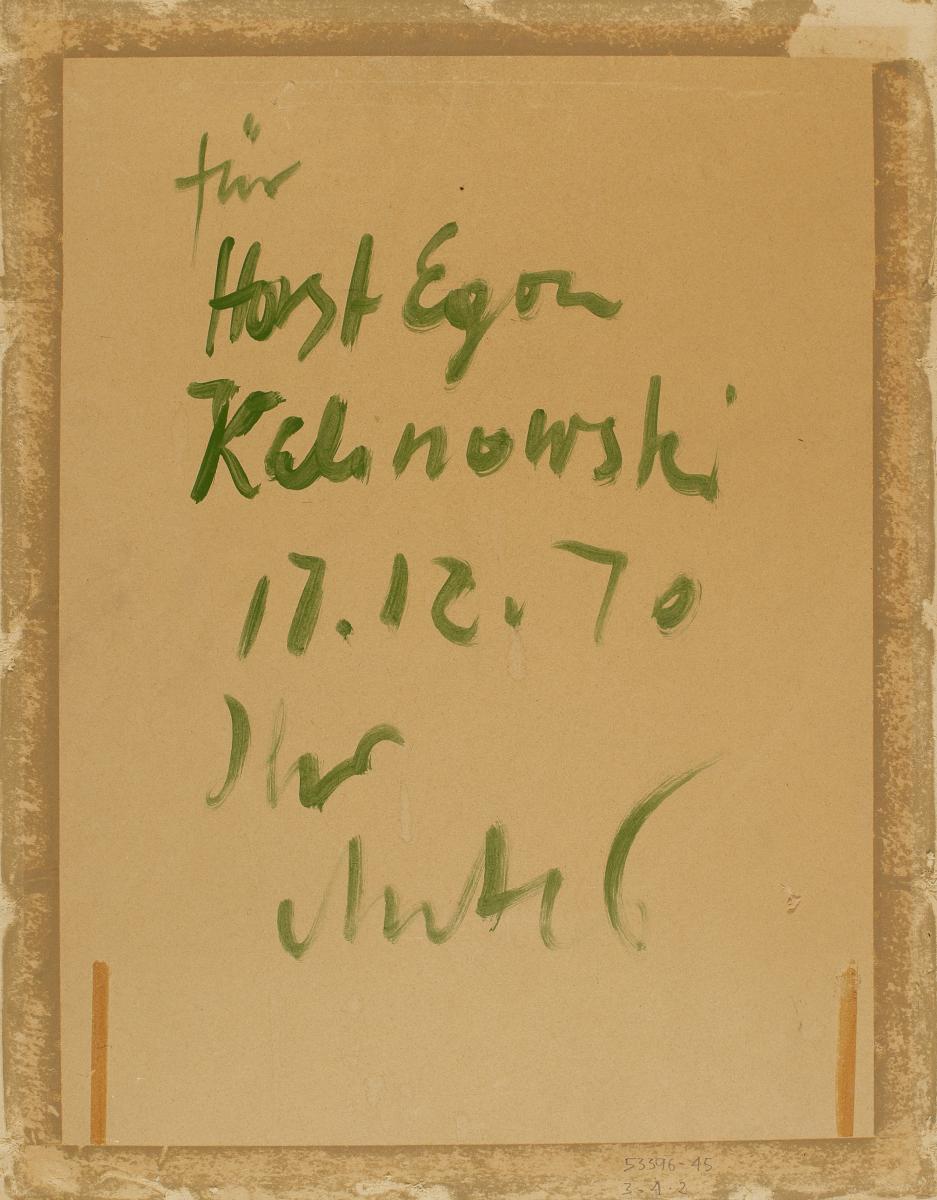 für
Horst Egon
Kalinowski
17.12.70
Ihr
53396-45
3-1-2